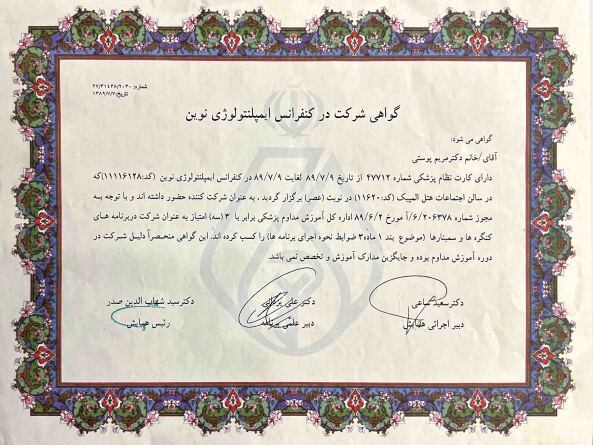 شماره: ۲۷/۳۱۴۳۸/۲۰۳۰
تاریخ: ۱۳۸۹/۷/۷
گواهی شرکت در کنفرانس ایمپلنتولوژی نوین
گواهی می شود:
آقای/خانم دکتر مریم پوستی
دارای کارت نظام پزشکی شماره ۴۷۷۱۲ از تاریخ ۸۹/۷/۹ لغایت ۸۹/۷/۹ در کنفرانس ایمپلنتولوژی نوین (کد:۱۱۱۱۶۱۲۸)که
در سالن اجتماعات هتل المپیک (کد:۱۱۶۲۰) در نوبت (عصر) برگزار گردید ، به عنوان شرکت کننده حضور داشته اند و با توجه به
مجوز شماره ۲۰۶۳۷۸/آ/۶ مورخ ۸۹/۶/۲ اداره کل آموزش مداوم پزشکی برابر با ۳ (سه) امتیاز به عنوان شرکت دربرنامه های
کنگره ها و سمینارها (موضوع بند ۱ ماده۳ ضوابط نحوه اجرای برنامه ها) را کسب کرده اند. این گواهی منحصراً دلیل شرکت در
دوره آموزش مداوم بوده و جایگزین مدارک آموزش و تخصص نمی باشد.
دکتر سعید ساعی دکتر علی یزدانی دکتر سید شهاب الدین صدر
دبیر اجرائی همایش دبیر علمی برنامه رئیس همایش